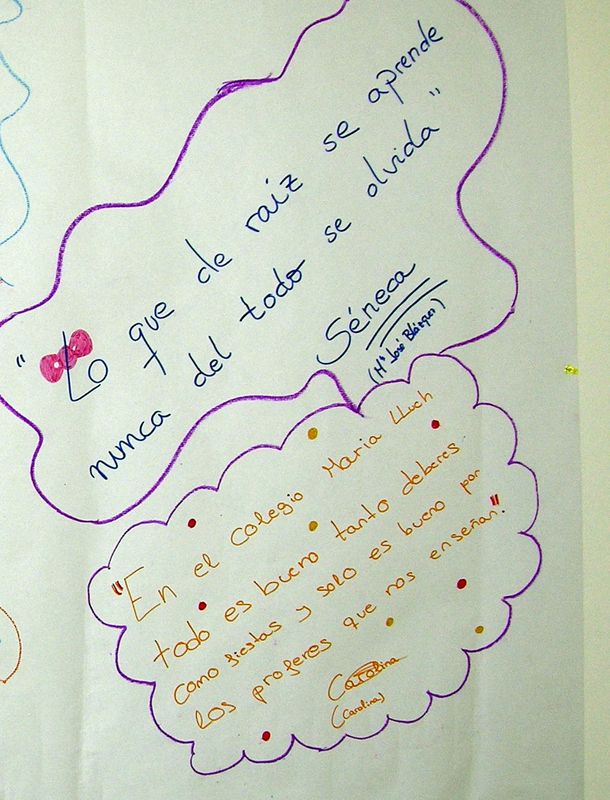 "Lo que de raíz se aprende
nunca del todo se olvida"
Séneca
(Mª José Blázquez)
"En el colegio Maria LLuch
todo es bueno tanto deberes
como fiestas y solo es bueno por
los proferes que nos enseñan."
Carolina
(Carolina)